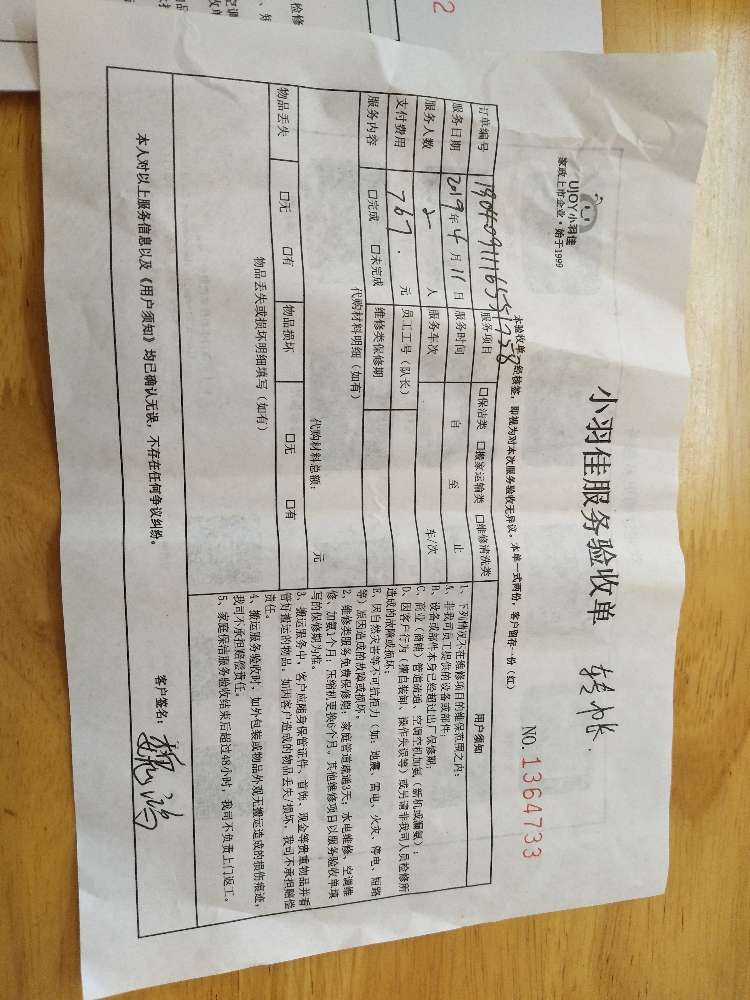 UJOY小羽佳
家政上市企业·始于1999
小羽佳服务验收单
转帐.
NO. 1364733
本验收单一经核签，即视为对本次服务验收无异议，本单一式两份，客户留存一份（红）
订单编号
服务项目 □保洁类 □搬家运输类 □维修清洗类
服务日期 2019年4月11日 服务时间 自 至 止
服务人数 2 人 服务车次 车/次
支付费用 767. 元 员工工号（队长）
服务内容 □完成 □未完成 维修类保修期
代购材料明细（如有）
代购材料总额： 元
物品丢失 □无 □有 物品损坏 □无 □有
物品丢失或损坏明细填写（如有）
用户须知
1、下列情况不在维修项目的维保范围之内：
A、非我司员工提供的设备或部件；
B、设备或部件本身已经超过出厂保修期；
C、商业（商铺）管道疏通、空调空机加氨（新机或漏氨）；
D、因客户行为（擅自装卸、操作失误等）或另请非我司人员检修所
造成的故障或损坏；
E、因自然灾害等不可抗拒力（如：地震、雷电、火灾、停电、短路
等）原因造成的故障或损坏。
2、维修类服务免费保修期：家庭管道疏通3天；水电维修、空调维
修、加氨1个月；压缩机更换6个月。其他维修项目以服务验收单填
写的保修期为准。
3、搬运服务中，客户应随身保管证件、首饰、现金等贵重物品并看
管好搬运的物品。如因客户造成的物品丢失/损坏，我司不承担赔偿
责任。
4、搬运服务验收时，如外包装或物品外观无搬运造成的损伤痕迹，
我司不承担赔偿责任。
5、家庭保洁服务验收结束后超过48小时，我司不负责上门返工。
本人对以上服务信息以及《用户须知》均已确认无误，不存在任何争议纠纷。
客户签名：
检修
2